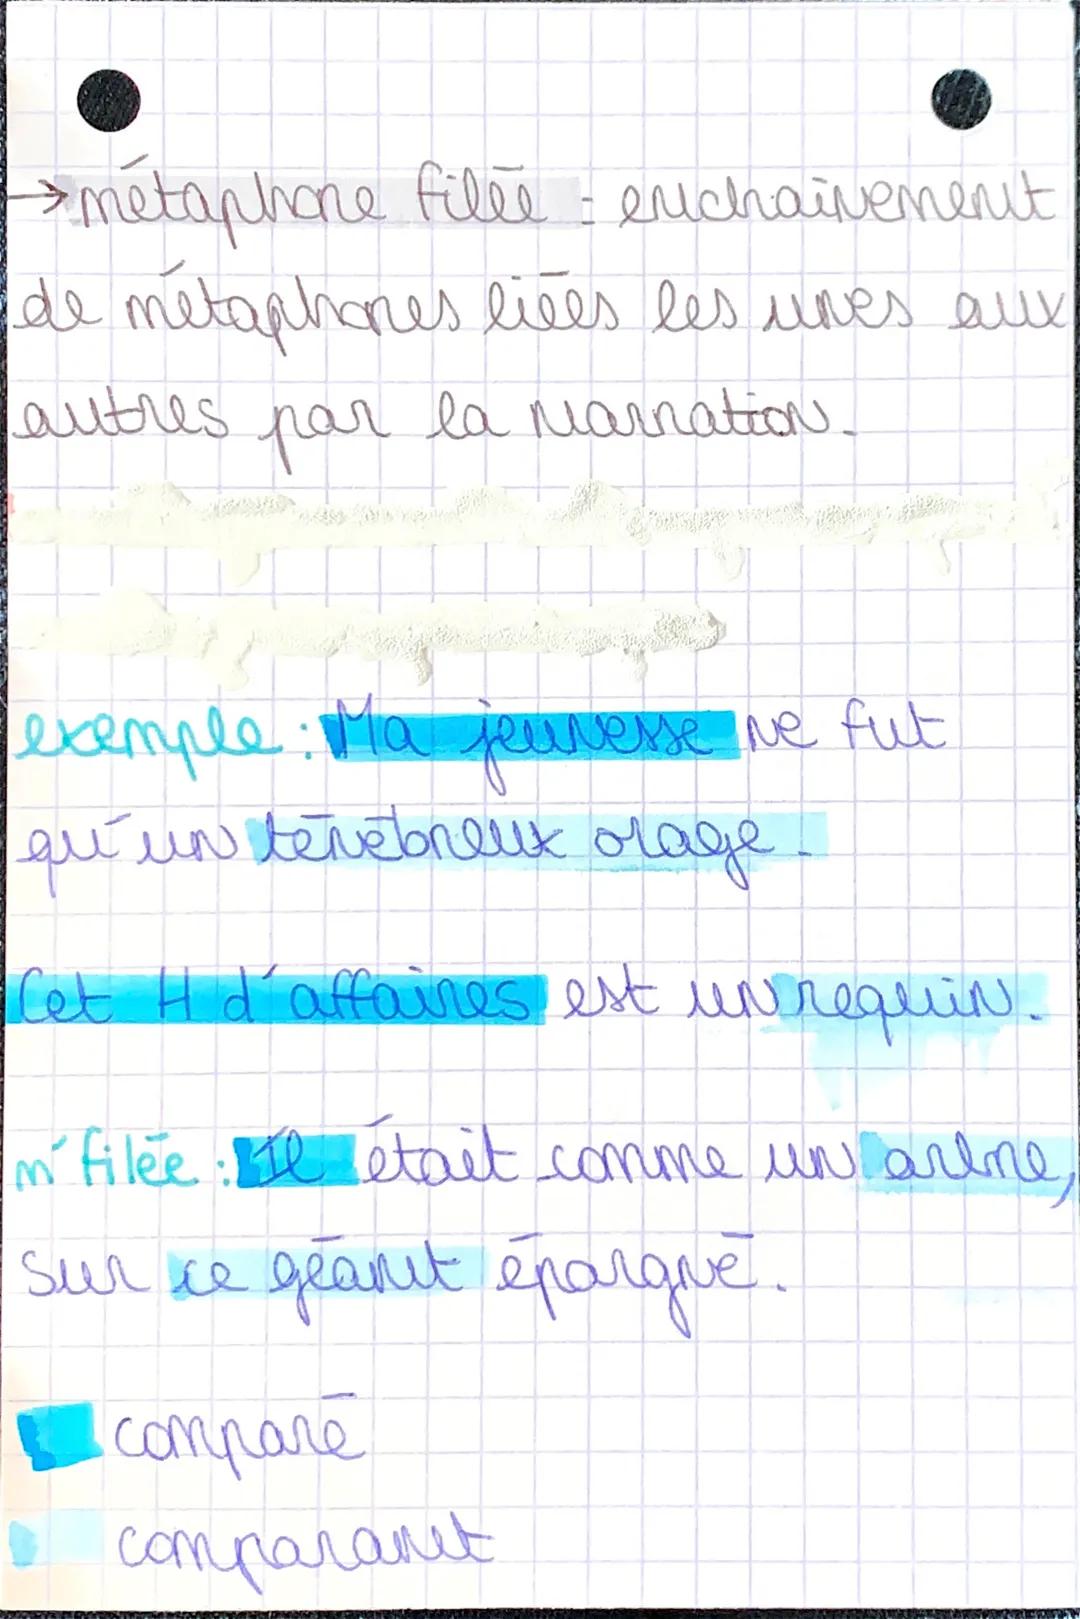 → métaphore filée : enchaînement
de métaphores liées les unes aux
autres par la narration.
exemple : Ma jeunesse ne fut
qu'un ténébreux orage.
Cet H d'affaires est un requin.
m' filée : Il était comme un arbre,
sur ce géant épargné.
comparé
comparant